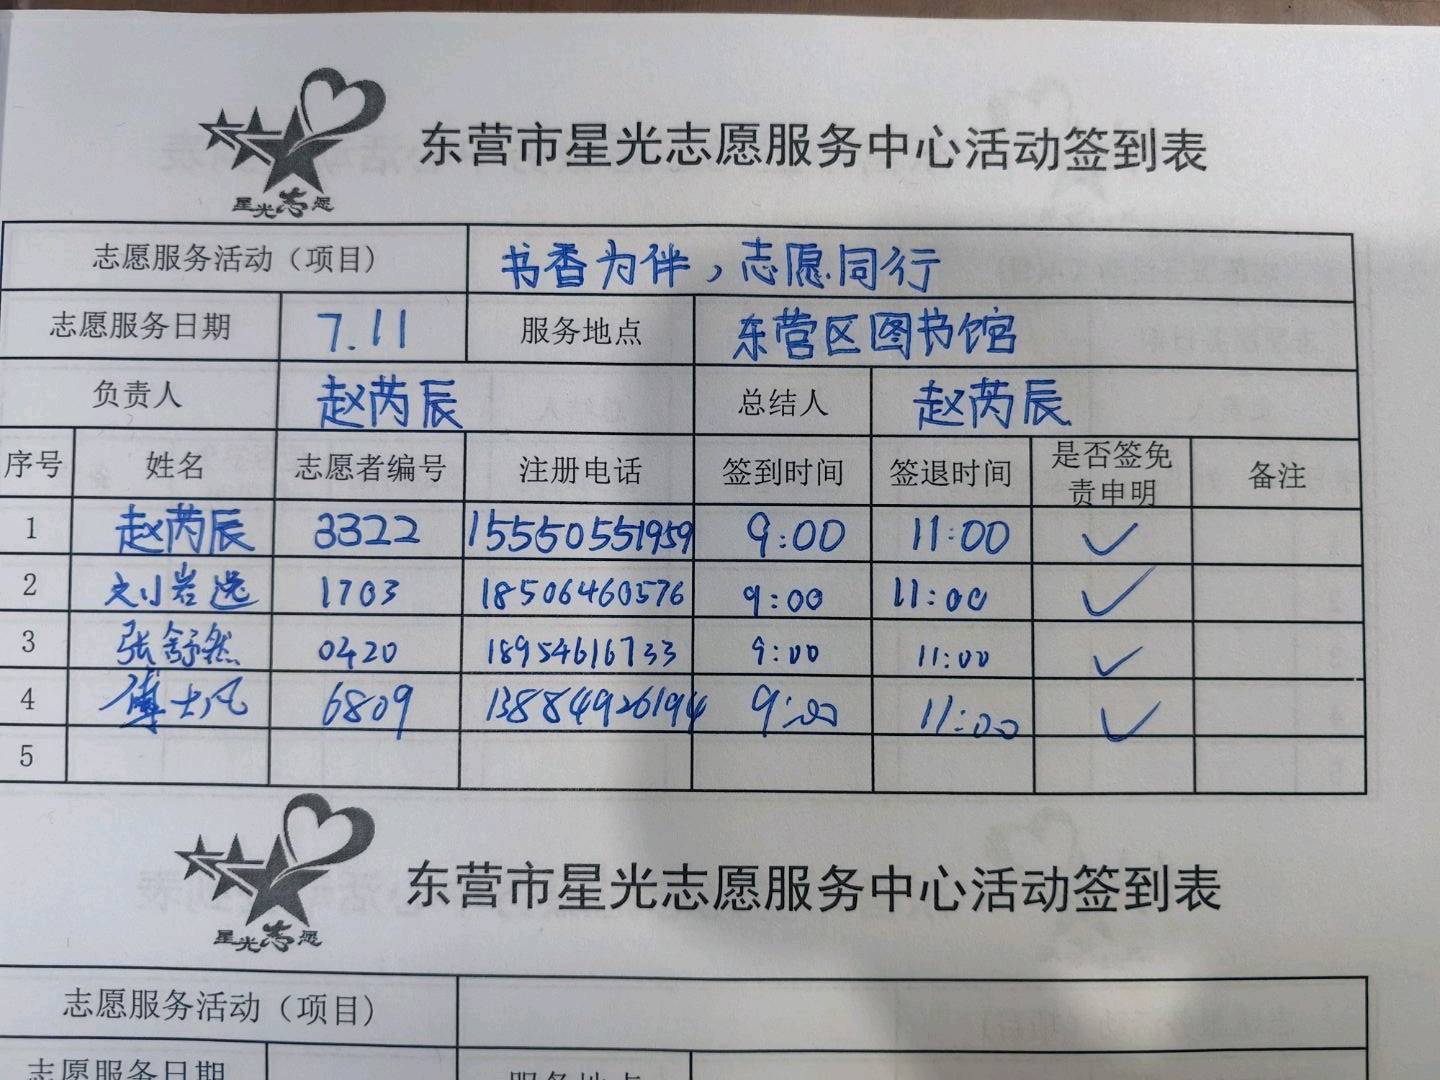 星光志愿
东营市星光志愿服务中心活动签到表
志愿服务活动（项目） 书香为伴，志愿同行
志愿服务日期 7.11 服务地点 东营区图书馆
负责人 赵芮辰 总结人 赵芮辰
序号 姓名 志愿者编号 注册电话 签到时间 签退时间 是否签免责申明 备注
1 赵芮辰 3322 15550551959 9:00 11:00 ✓
2 刘岩逸 1703 18506460576 9:00 11:00 ✓
3 张舒然 0420 18954616733 9:00 11:00 ✓
4 6809 13884926194 9:00 11:00 ✓
5
星光志愿
东营市星光志愿服务中心活动签到表
志愿服务活动（项目）
志愿服务日期 服务地点